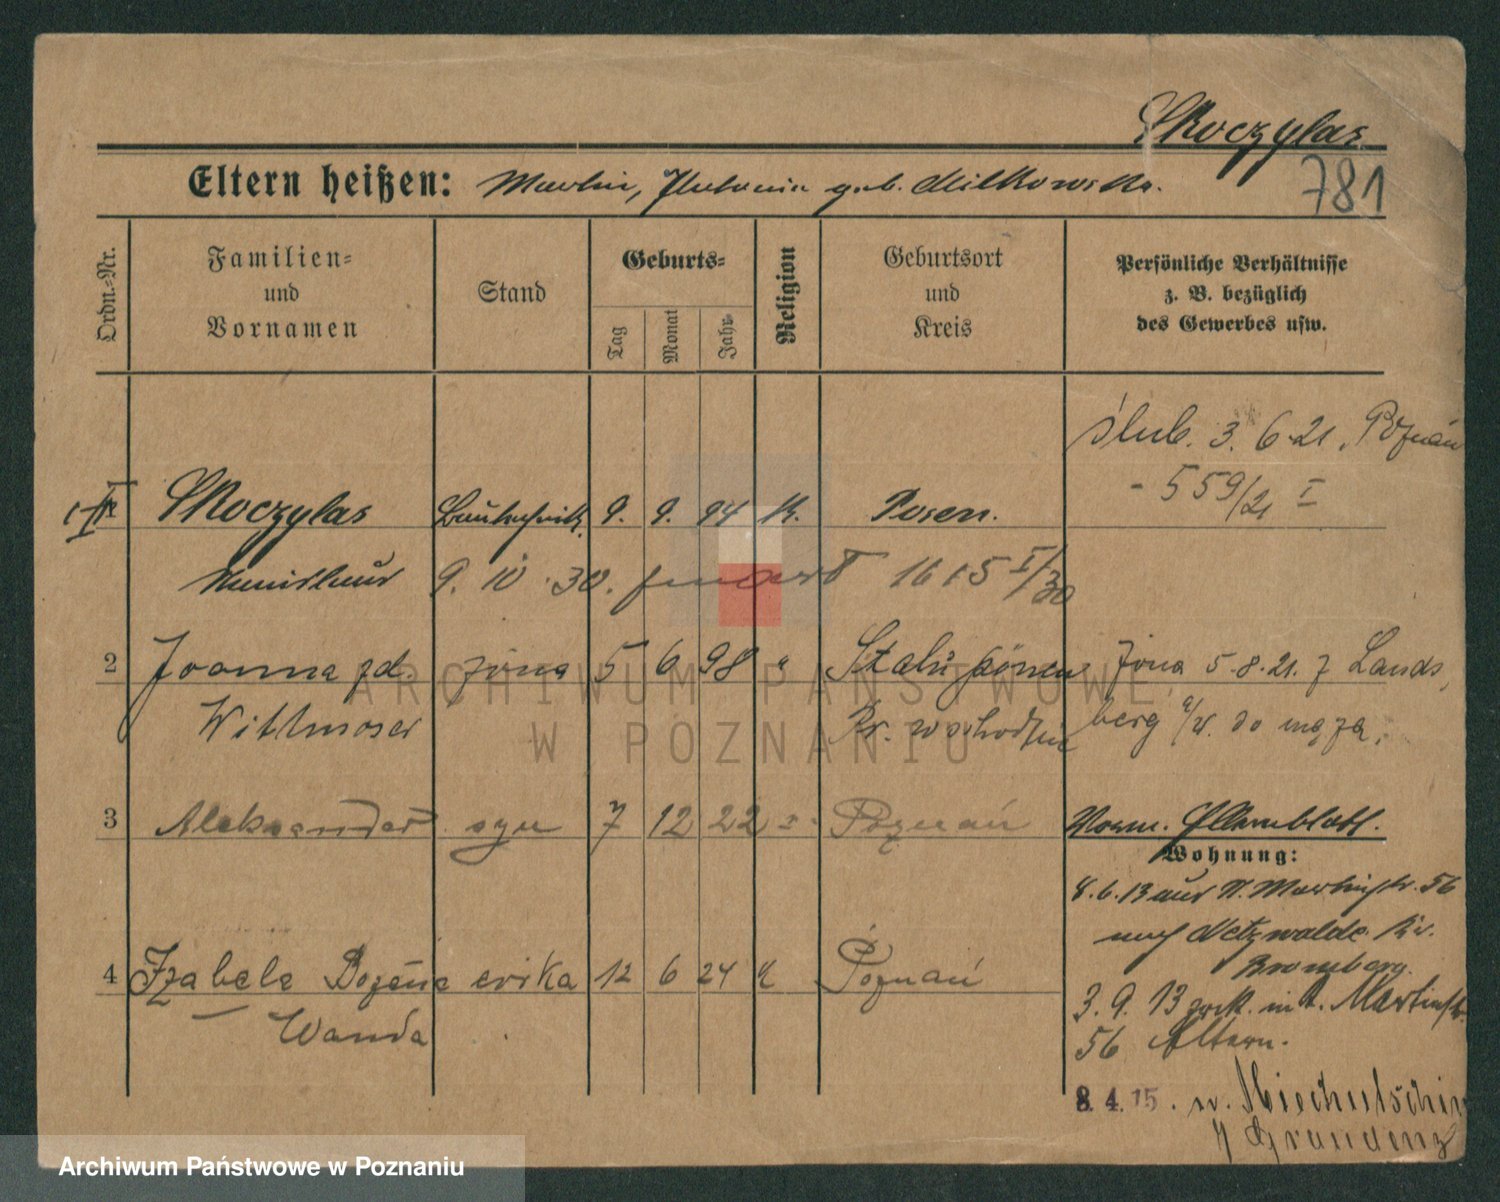 Skoczylas
781
Eltern heißen: Martin, Antonia geb. Milkowska.
Ordn.-Nr.
Familien-
und
Vornamen
Stand
Geburts-
Tag
Monat
Jahr
Religion
Geburtsort
und
Kreis
Persönliche Verhältnisse
z. B. bezüglich
des Gewerbes usw.
ślub. 3. 6. 21. Poznań
- 559/21 I
Skoczylas 9. 9. 94 k. Posen.
9. 10. 30.
2 Joanna zd. żona 5 6 98 Stalupönen żona 5.8.21. z Lands
Wittmoser Pr. wschodnie berg a/W. do męża.
3 Aleksander syn 7 12 22 Poznań
Vorm. Elternblatt.
Wohnung:
8.6.13 aus St. Martinstr. 56
nach Netzwalde Kr.
Bromberg.
4 Izabela Bożena córka 12 6 24 k Poznań
Wanda
3. 9. 13 zck. in St. Martinstr.
56 Eltern.
8. 4. 15. n.
Graudenz
ARCHIWUM PAŃSTWOWE
W POZNANIU
Archiwum Państwowe w Poznaniu